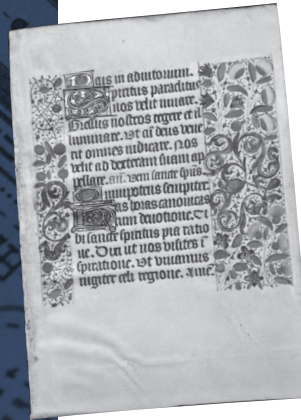 Deus in adiutorium.
Spiritus paraclitus
nos velit iuuare.
Gressus nostros regere et il
luminare. Vt cū deus vene
rit omnes iudicare. Nos
velit ad dexteram suam ap
pellare. an. Veni sancte spūs.
Omnipotens sempiter
has horas canonicas
cum deuotione. Ti
bi sancte spiritus pia ratio
ne. Dixi ut nos visites ī
spiratione. Vt viuamus
iugiter celi regione. Ame.